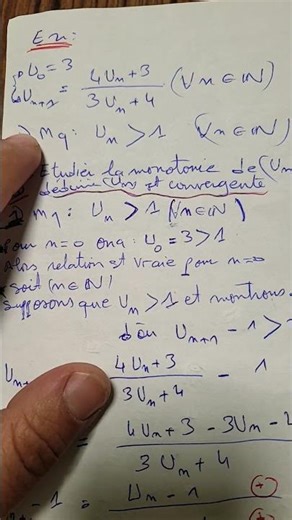 Ex:
U₀ = 3
Uₙ₊₁ = 4Uₙ+3 / 3Uₙ+4 (∀n∈ℕ)
) Mq: Uₙ > 1 (∀n∈ℕ)
Etudier la monotonie de (Uₙ
déduire (Uₙ) est convergente
Mq: Uₙ > 1 (∀n∈ℕ)
Pour n=0 ona: U₀ = 3 > 1
Alors relation est vraie pour n=0
soit (n∈ℕ)
supposons que Uₙ > 1 et montrons
d'où Uₙ₊₁ - 1 >
4Uₙ+3 / 3Uₙ+4 - 1
= 4Uₙ+3 - 3Uₙ - / 3Uₙ+4
- 1 = Uₙ - 1 ⊕